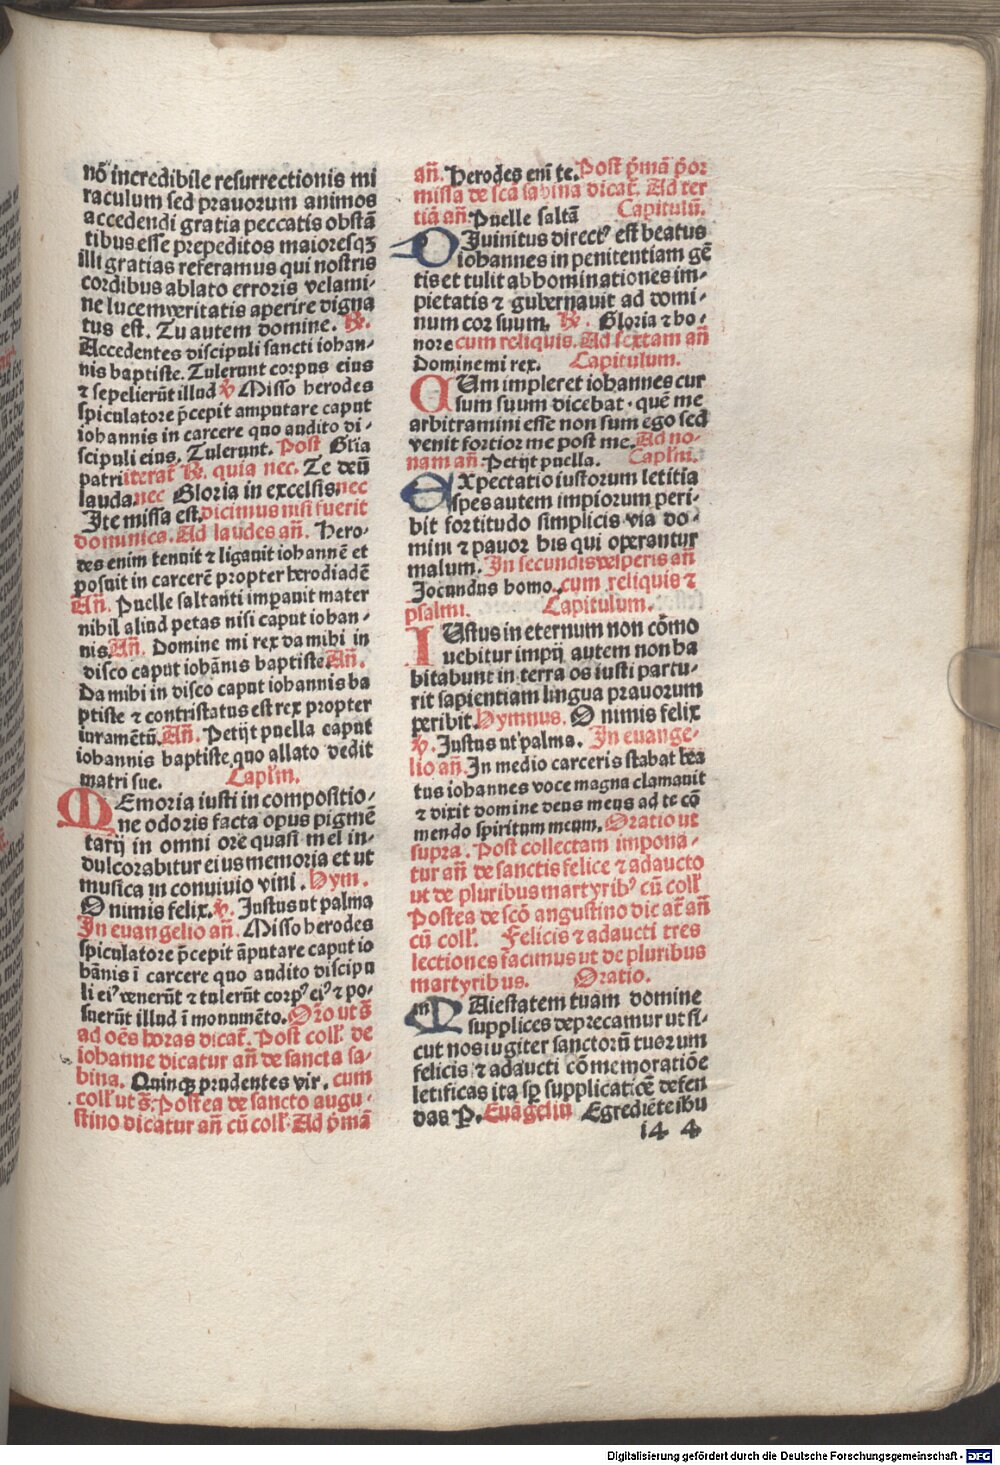 nō incredibile resurrectionis mi
raculum sed prauorum animos
accedendi gratia peccatis obstā
tibus esse prepeditos maioresqꝫ
illi gratias referamus qui nostris
cordibus ablato erroris velami-
ne lucem veritatis aperire digna
tus est. Tu autem domine. ℟.
Accedentes discipuli sancti iohan-
nis baptiste. Tulerunt corpus eius
⁊ sepelierūt illud ℣ Misso herodes
spiculatore p̄cepit amputare caput
iohannis in carcere quo audito di-
scipuli eius. Tulerunt. Post Gl'ia
patri iterat̄ ℟. quia nec. Te deū
lauda. nec Gloria in excelsis nec
Ite missa est. dicimus nisi fuerit
dominica. Ad laudes an̄. Hero-
des enim tenuit ⁊ ligauit iohannē et
posuit in carcerē propter herodiadē
An̄. Puelle saltanti imperauit mater
nihil aliud petas nisi caput iohan-
nis. An̄. Domine mi rex da mihi in
disco caput iohānis baptiste An̄.
Da mihi in disco caput iohannis ba
ptiste ⁊ contristatus est rex propter
iuramētū. An̄. Petijt puella caput
iohannis baptiste quo allato dedit
matri sue. Capl'm.
MEmoria iusti in compositio-
ne odoris facta opus pigmē
tarij in omni ore quasi mel in-
dulcorabitur eius memoria et ut
musica in conuiuio vini. Hym.
O nimis felix. ℣. Justus ut palma
In euangelio an̄. Misso herodes
spiculatore p̄cepit āputare caput io
hānis ī carcere quo audito discipu
li eiꝰ venerūt ⁊ tulerūt corpꝰ eiꝰ ⁊ po-
suerūt illud ī monumēto. Or̄o ut s̄
ad oēs horas dicat̄. Post coll'. de
iohanne dicatur an̄ de sancta sa-
bina. Quinqꝫ prudentes vir. cum
coll' ut s̄. Postea de sancto augu-
stino dicatur an̄ cū coll'. Ad p̄mā
an̄. Herodes eni te. Post p̄mā p̄or
missa de scā sabina dicat̄. Ad ter
tiā an̄. Puelle saltā Capitulū.
DIuinitus directꝰ est beatus
iohannes in penitentiam gē
tis et tulit abhominationes im-
pietatis ⁊ gubernauit ad domi-
num cor suum. ℟. Gloria ⁊ ho-
nore cum reliquis. Ad sextam an̄
Domine mi rex. Capitulum.
CUm impleret iohannes cur
sum suum dicebat. quē me
arbitramini esse non sum ego sed
venit fortior me post me. Ad no-
nam an̄. Petijt puella. Capl'm.
EXpectatio iustorum letitia
spes autem impiorum peri-
bit fortitudo simplicis via do-
mini ⁊ pauor his qui operantur
malum. In secundis vesperis an̄
Jocundus homo. cum reliquis ⁊
psalmi. Capitulum.
IUstus in eternum non cōmo
uebitur impij autem non ha
bitabunt in terra os iusti partu-
rit sapientiam lingua prauorum
peribit. Hymnus. O nimis felix
℣. Justus ut palma. In euange-
lio an̄. In medio carceris stabat bea
tus iohannes voce magna clamauit
⁊ dixit domine deus meus ad te cō
mendo spiritum meum. Oratio ut
supra. Post collectam impona-
tur an̄ de sanctis felice ⁊ adaucto
ut de pluribus martyribꝰ cū coll'
Postea de scō augustino dicat̄ an̄
cū coll'. Felicis ⁊ adaucti tres
lectiones facimus ut de pluribus
martyribus. Oratio.
MAiestatem tuam domine
supplices deprecamur ut si-
cut nos iugiter sanctorū tuorum
felicis ⁊ adaucti cōmemoratiōe
letificas ita sp̄ supplicat̄cē defen
das P. Euāgeliū Egrediēte ihu
i4 4
Digitalisierung gefördert durch die Deutsche Forschungsgemeinschaft - DFG